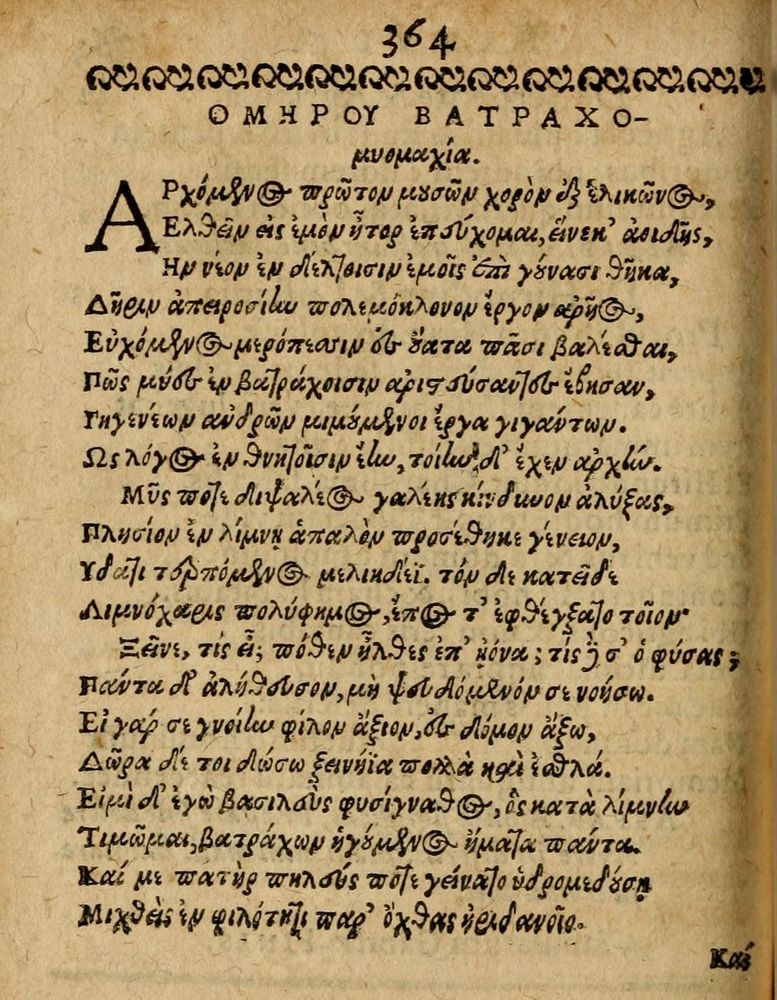 364
ΟΜΗΡΟΥ ΒΑΤΡΑΧΟ-
μυομαχία.
ΑΡχόμενος πρῶτον μουσῶν χορὸν ἐξ ἑλικῶνος,
Ελθεῖν εἰς ἐμὸν ἦτορ ἐπεύχομαι, εἵνεκ' ἀοιδῆς,
Ην νέον ἐν δέλτοισιν ἐμοῖς ἐπὶ γούνασι θῆκα,
Δῆριν ἀπειρεσίην πολεμόκλονον ἔργον ἄρηος,
Εὐχόμενος μερόπεσσιν ἐς οὔατα πᾶσι βαλέσθαι,
Πῶς μύες ἐν βατράχοισιν ἀριστεύσαντες ἔβησαν,
Γηγενέων ἀνδρῶν μιμούμενοι ἔργα γιγάντων.
Ως λόγος ἐν θνητοῖσιν ἔην, τοίην δ' ἔχεν ἀρχήν.
Μῦς ποτε διψαλέος γαλέης κίνδυνον ἀλύξας,
Πλησίον ἐν λίμνῃ ἁπαλὸν προσέθηκε γένειον,
Υδατι τερπόμενος μελιηδέϊ. τὸν δὲ κατεῖδε
Λιμνόχαρις πολύφημος, ἔπος τ' ἐφθέγξατο τοῖον·
Ξεῖνε, τίς εἶ; πόθεν ἦλθες ἐπ' ἠόνα; τίς δέ σ' ὁ φύσας;
Πάντα δ' ἀλήθευσον, μὴ ψευδόμενόν σε νοήσω.
Εἰ γάρ σε γνοίην φίλον ἄξιον, ἐς δόμον ἄξω,
Δῶρα δέ τοι δώσω ξεινήϊα πολλὰ καὶ ἐσθλά.
Εἰμὶ δ' ἐγὼ βασιλεὺς φυσίγναθος, ὃς κατὰ λίμνην
Τιμῶμαι, βατράχων ἡγούμενος ἤματα πάντα.
Καί με πατὴρ πηλεύς ποτε γείνατο ὑδρομεδούσῃ
Μιχθεὶς ἐν φιλότητι παρ' ὄχθας ἠριδανοῖο.
Καί